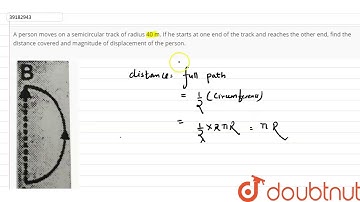 39182943
A person moves on a semicircular track of radius 40 m. If he starts at one end of the track and reaches the other end, find the
distance covered and magnitude of displacement of the person.
distance = full path
= 1/2 (circumference)
= 1/2 × 2πR = πR
B
doubtnut